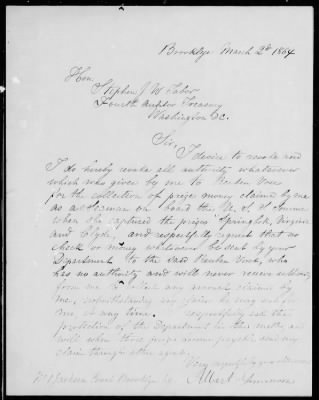 Brooklyn March 2d 1864
Hon.
Stephen J. W. Tabor
Fourth Auditor Treasury
Washington D.C.
Sir,
I desire to revoke and
I do hereby revoke all authority whatsoever
which was given by me to Reuben Vose
for the collection of prize money claimed by me
as a on board the U. S. S.
when she captured the prizes Springbok, Virginia
and Clyde, and respectfully request that no
check or money whatsoever be sent by your
Department to the said Reuben Vose, who
has no authority and will never receive
from me to collect any moneys claimed by
me, notwithstanding any he may
me, at any time. I respectfully ask the
protection of the Department in this matter and
will when those prizes
claim through other
Very respectfully your
Albert